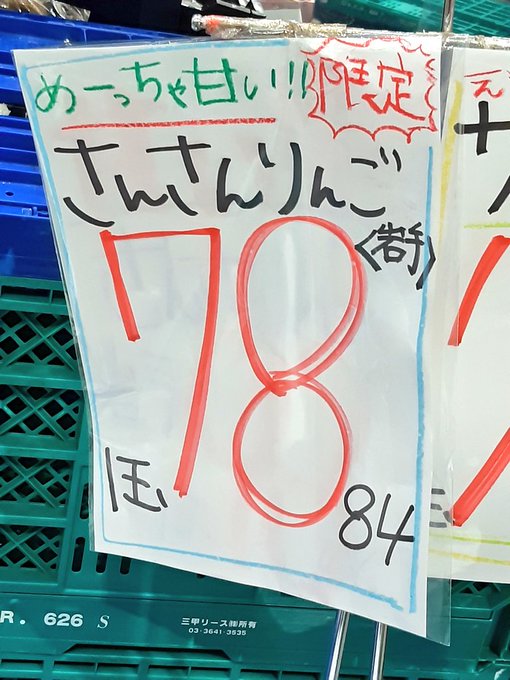 めーっちゃ甘い!!
限定
さんさんりんご
〈岩手〉
78
1玉
84
R. 626 S
三甲リース㈱所有
03-3641-3535